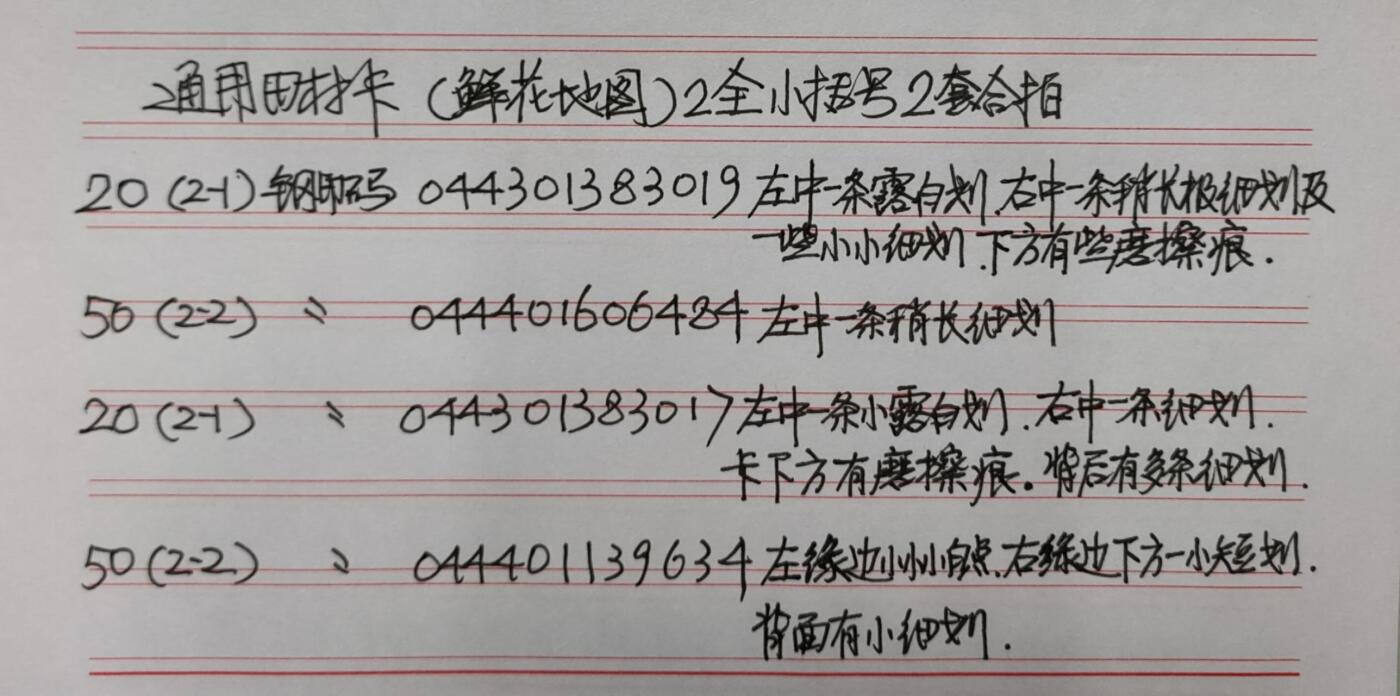 通用田村卡（鲜花地图）2全小括号2套合拍
20（2-1）钢印码 044301383019 左中一条露白划.右中一条稍长极细划及
一些小小细划.下方有些磨擦痕.
50（2-2） 〃 044401606484 左中一条稍长细划
20（2-1） 〃 044301383017 左中一条小露白划.右中一条细划.
卡下方有磨擦痕。背后有多条细划.
50（2-2） 〃 044401139634 左缘边小小小白点.右缘边下方一小短划.
背面有小细划.